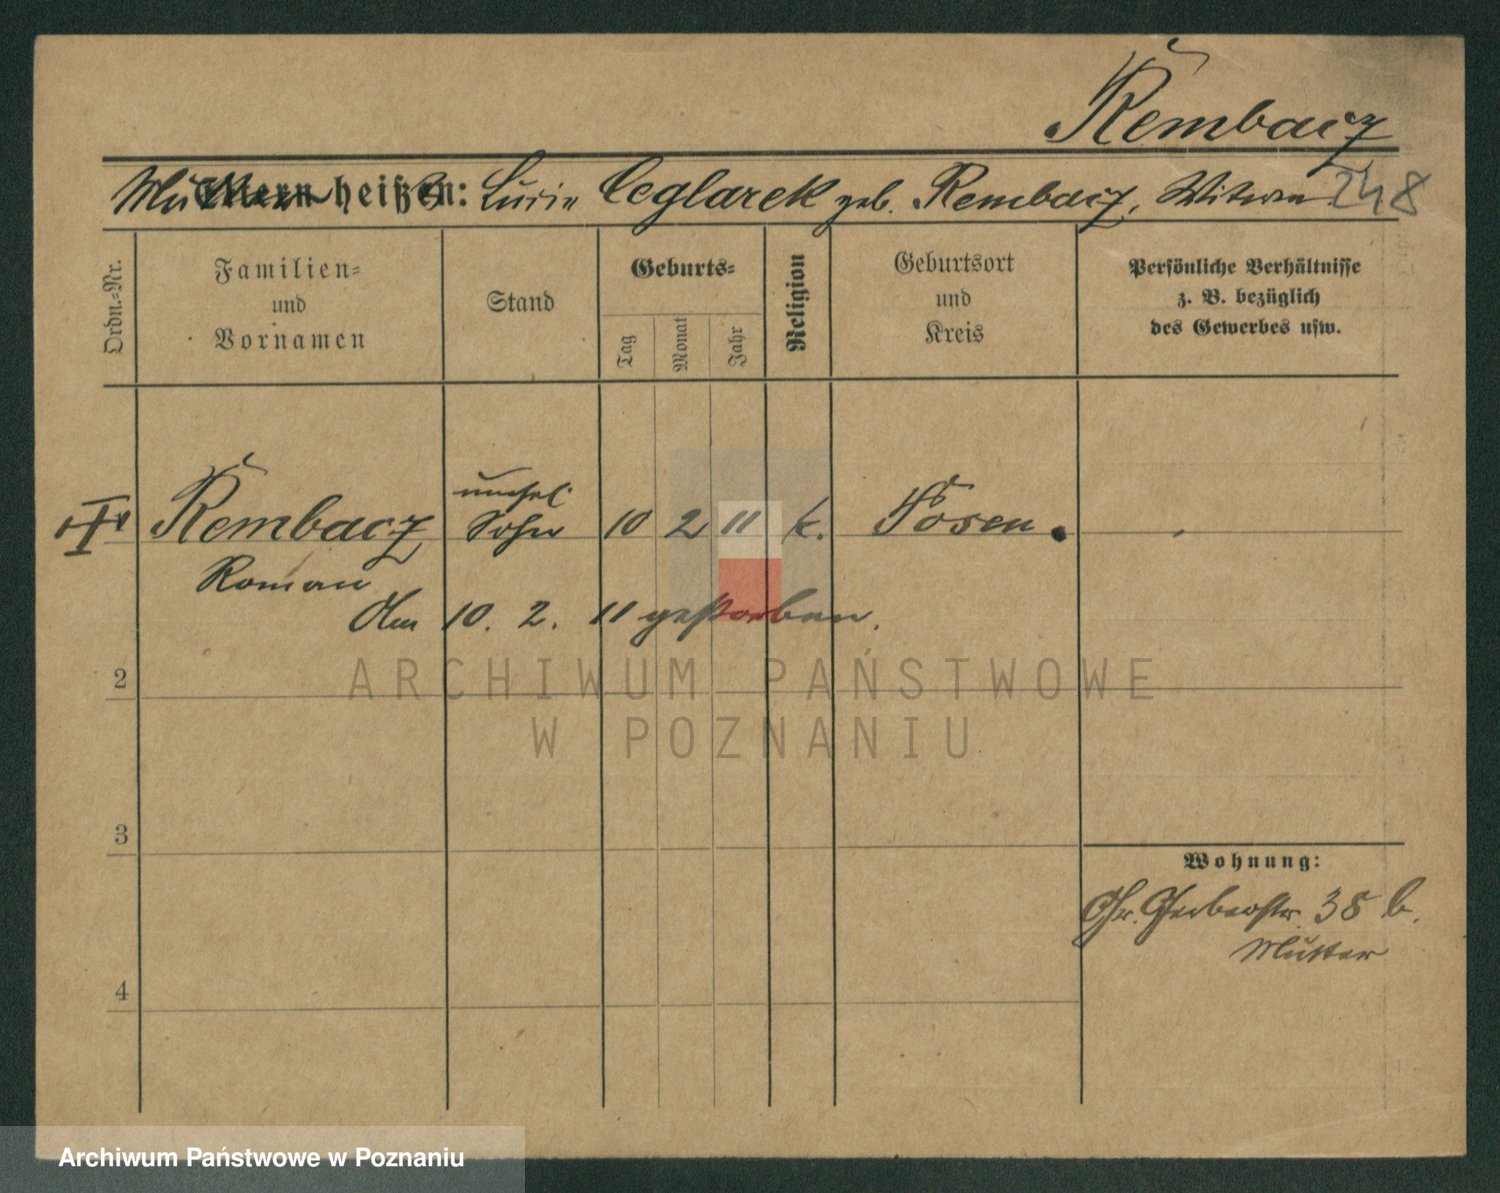 Rembacz
Mutter heißt: Lucie Ceglarek geb. Rembacz, Witwe 248
Ordn.-Nr.
Familien-
und
Vornamen
Stand
Geburts-
Tag
Monat
Jahr
Religion
Geburtsort
und
Kreis
Persönliche Verhältnisse
z. B. bezüglich
des Gewerbes usw.
unehel.
Rembacz Sohn 10 2 11 k. Posen.
Roman
Am 10. 2. 11 gestorben.
ARCHIWUM PAŃSTWOWE
W POZNANIU
2
3
4
Wohnung:
Gr. Gerberstr. 38 b.
Mutter
Archiwum Państwowe w Poznaniu